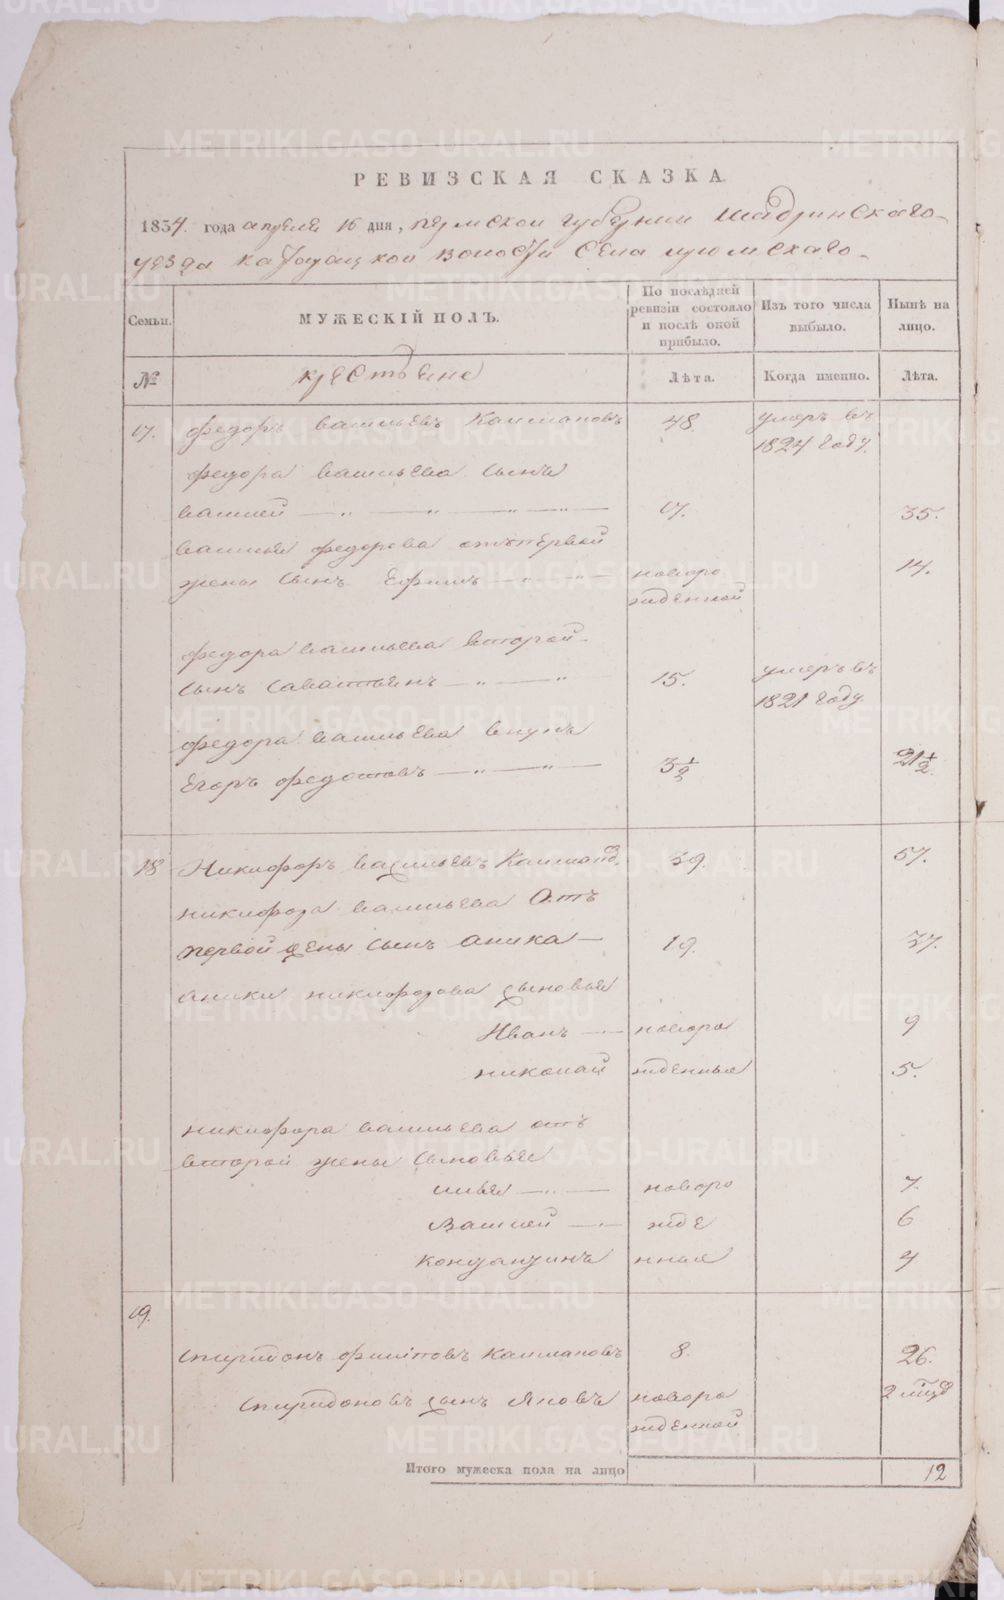 РЕВИЗСКАЯ СКАЗКА
1834. года апреля 16 дня, пермской губернии шадринскаго
уезда катайской волости села
Семьи. МУЖЕСКІЙ ПОЛЪ. По послѣдней ревизіи состояло и послѣ оной прибыло. Изъ того числа выбыло. Нынѣ на лицо.
№ крестьяне Лѣта. Когда именно. Лѣта.
17. федоръ васильевъ Калмаковъ 48. умеръ въ
1824 году.
федора васильева сынъ
василей 17. 35.
василья федорова отъ первой
жены сынъ Ефимъ новоро 14.
жденной
федора васильева второй
сынъ саватьянъ 15. умеръ въ
1821 году
федора васильева внукъ
Егоръ федотовъ 3½ 21½.
18 Никифоръ васильевъ 39. 57.
никифора васильева отъ
первой жены сынъ аника 19. 37.
аники никифорова сыновья
Иванъ новоро 9
николай жденныя 5.
никифора васильева отъ
второй жены сыновья
илья новоро 7.
василей жде 6
нныя 4
19.
спиридонъ филіповъ калмаковъ 8. 26.
спиридоновъ сынъ яковъ новоро 2
жденной
Итого мужеска пола на лицо 12
METRIKI.GASO-URAL.RU